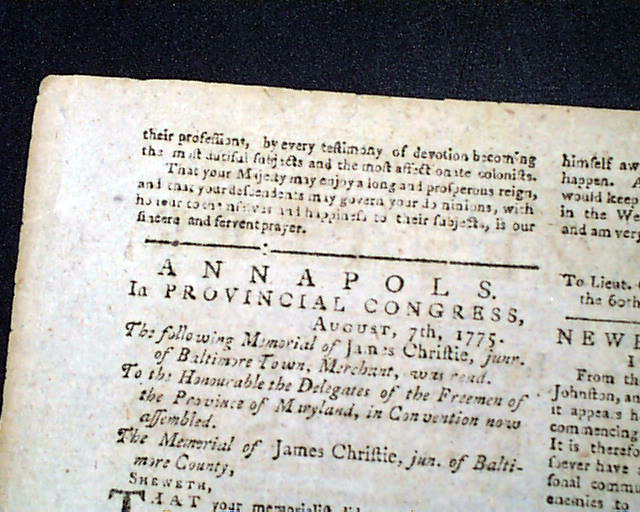 their profeſſions, by every teſtimony of devotion becoming
the moſt dutiful ſubjects and the moſt affectionate coloniſts.
That your Majeſty may enjoy a long and proſperous reign,
and that your deſcendents may govern your dominions, with
honour to themſelves and happineſs to their ſubjects, is our
ſincere and fervent prayer.
ANNAPOLS.
In PROVINCIAL CONGRESS,
AUGUST, 7th, 1775.
The following Memorial of James Chriſtie, junr.
of Baltimore Town, Merchant, was read.
To the Honourable the Delegates of the Freemen of
the Province of Maryland, in Convention now
aſſembled.
The Memorial of James Chriſtie, jun. of Balti-
more County,
SHEWETH,
THAT your memorialiſt
himſelf
happen.
would keep
in the We
and am very
To Lieut.
the 60th
NEWE
From th
Johnſton, an
it appears h
commencing
It is therefo
ſoever have
ſonal commu
enemies to